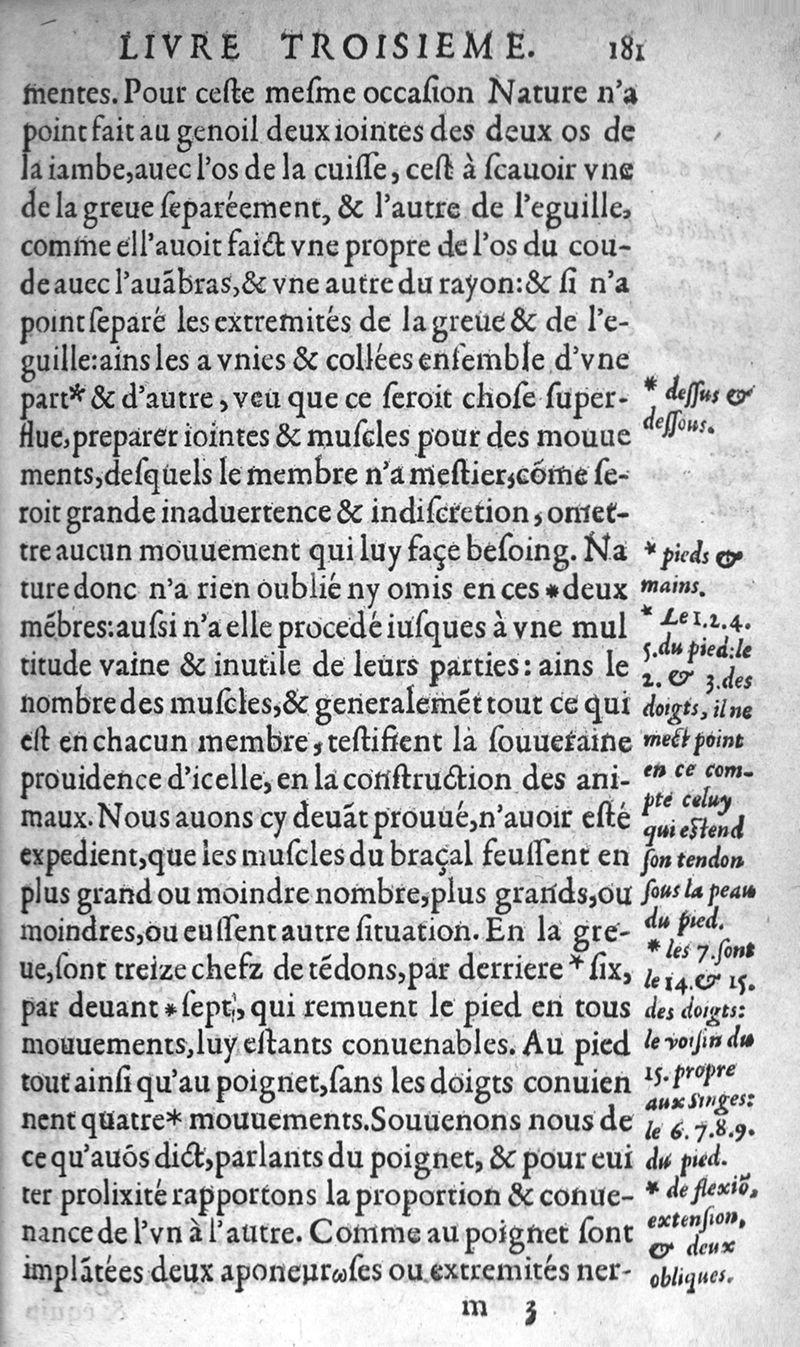 LIVRE TROISIEME. 181
mentes. Pour ceſte meſme occaſion Nature n'a
point fait au genoil deux iointes des deux os de
la iambe, auec l'os de la cuiſſe, ceſt à ſcauoir vne
de la greue ſeparéement, & l'autre de l'eguille,
comme ell'auoit faict vne propre de l'os du cou-
de auec l'auãbras, & vne autre du rayon: & ſi n'a
point ſeparé les extremités de la greue & de l'e-
guille: ains les a vnies & collées enſemble d'vne
part* & d'autre, veu que ce ſeroit choſe ſuper-
flue, preparer iointes & muſcles pour des mouue
ments, deſquels le membre n'a meſtier, cõme ſe-
roit grande inaduertence & indiſcretion, omet-
tre aucun mouuement qui luy façe beſoing. Na
ture donc n'a rien oublié ny omis en ces *deux
mẽbres: auſsi n'a elle procedé iuſques à vne mul
titude vaine & inutile de leurs parties: ains le
nombre des muſcles, & generalemẽt tout ce qui
eſt en chacun membre, teſtifient la ſouueraine
prouidence d'icelle, en la conſtruction des ani-
maux. Nous auons cy deuãt prouué, n'auoir eſté
expedient, que les muſcles du braçal feuſſent en
plus grand ou moindre nombre, plus grands, ou
moindres, ou euſſent autre ſituation. En la gre-
ue, ſont treize chefz de tẽdons, par derriere *ſix,
par deuant *ſept, qui remuent le pied en tous
mouuements, luy eſtants conuenables. Au pied
tout ainſi qu'au poignet, ſans les doigts conuien
nent quatre* mouuements. Souuenons nous de
ce qu'auõs dict, parlants du poignet, & pour eui
ter prolixité rapportons la proportion & conue-
nance de l'vn à l'autre. Comme au poignet ſont
implãtées deux aponeurωſes ou extremités ner-
m 3
* deſſus &
deſſous.
* pieds &
mains.
* Le 1.2.4.
5. du pied: le
2. & 3. des
doigts, il ne
mect point
en ce com-
pte celuy
qui eſtend
ſon tendon
ſous la peau
du pied.
* les 7. ſont
le 14. & 15.
des doigts:
le voiſin du
15. propre
aux Singes:
le 6. 7. 8. 9.
du pied.
* de flexiõ,
extenſion,
& deux
obliques.